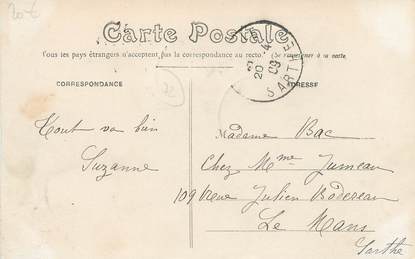 20 €
Carte Postale
Tous les pays étrangers n'acceptent pas la correspondance au recto. (Se renseigner à la poste
CORRESPONDANCE
ADRESSE
20 -4
09
SARTHE
Tout va bien
Suzanne
Madame Bac
Chez Mme Jumeau
109 rue Julien Bodereau
Le Mans
Sarthe